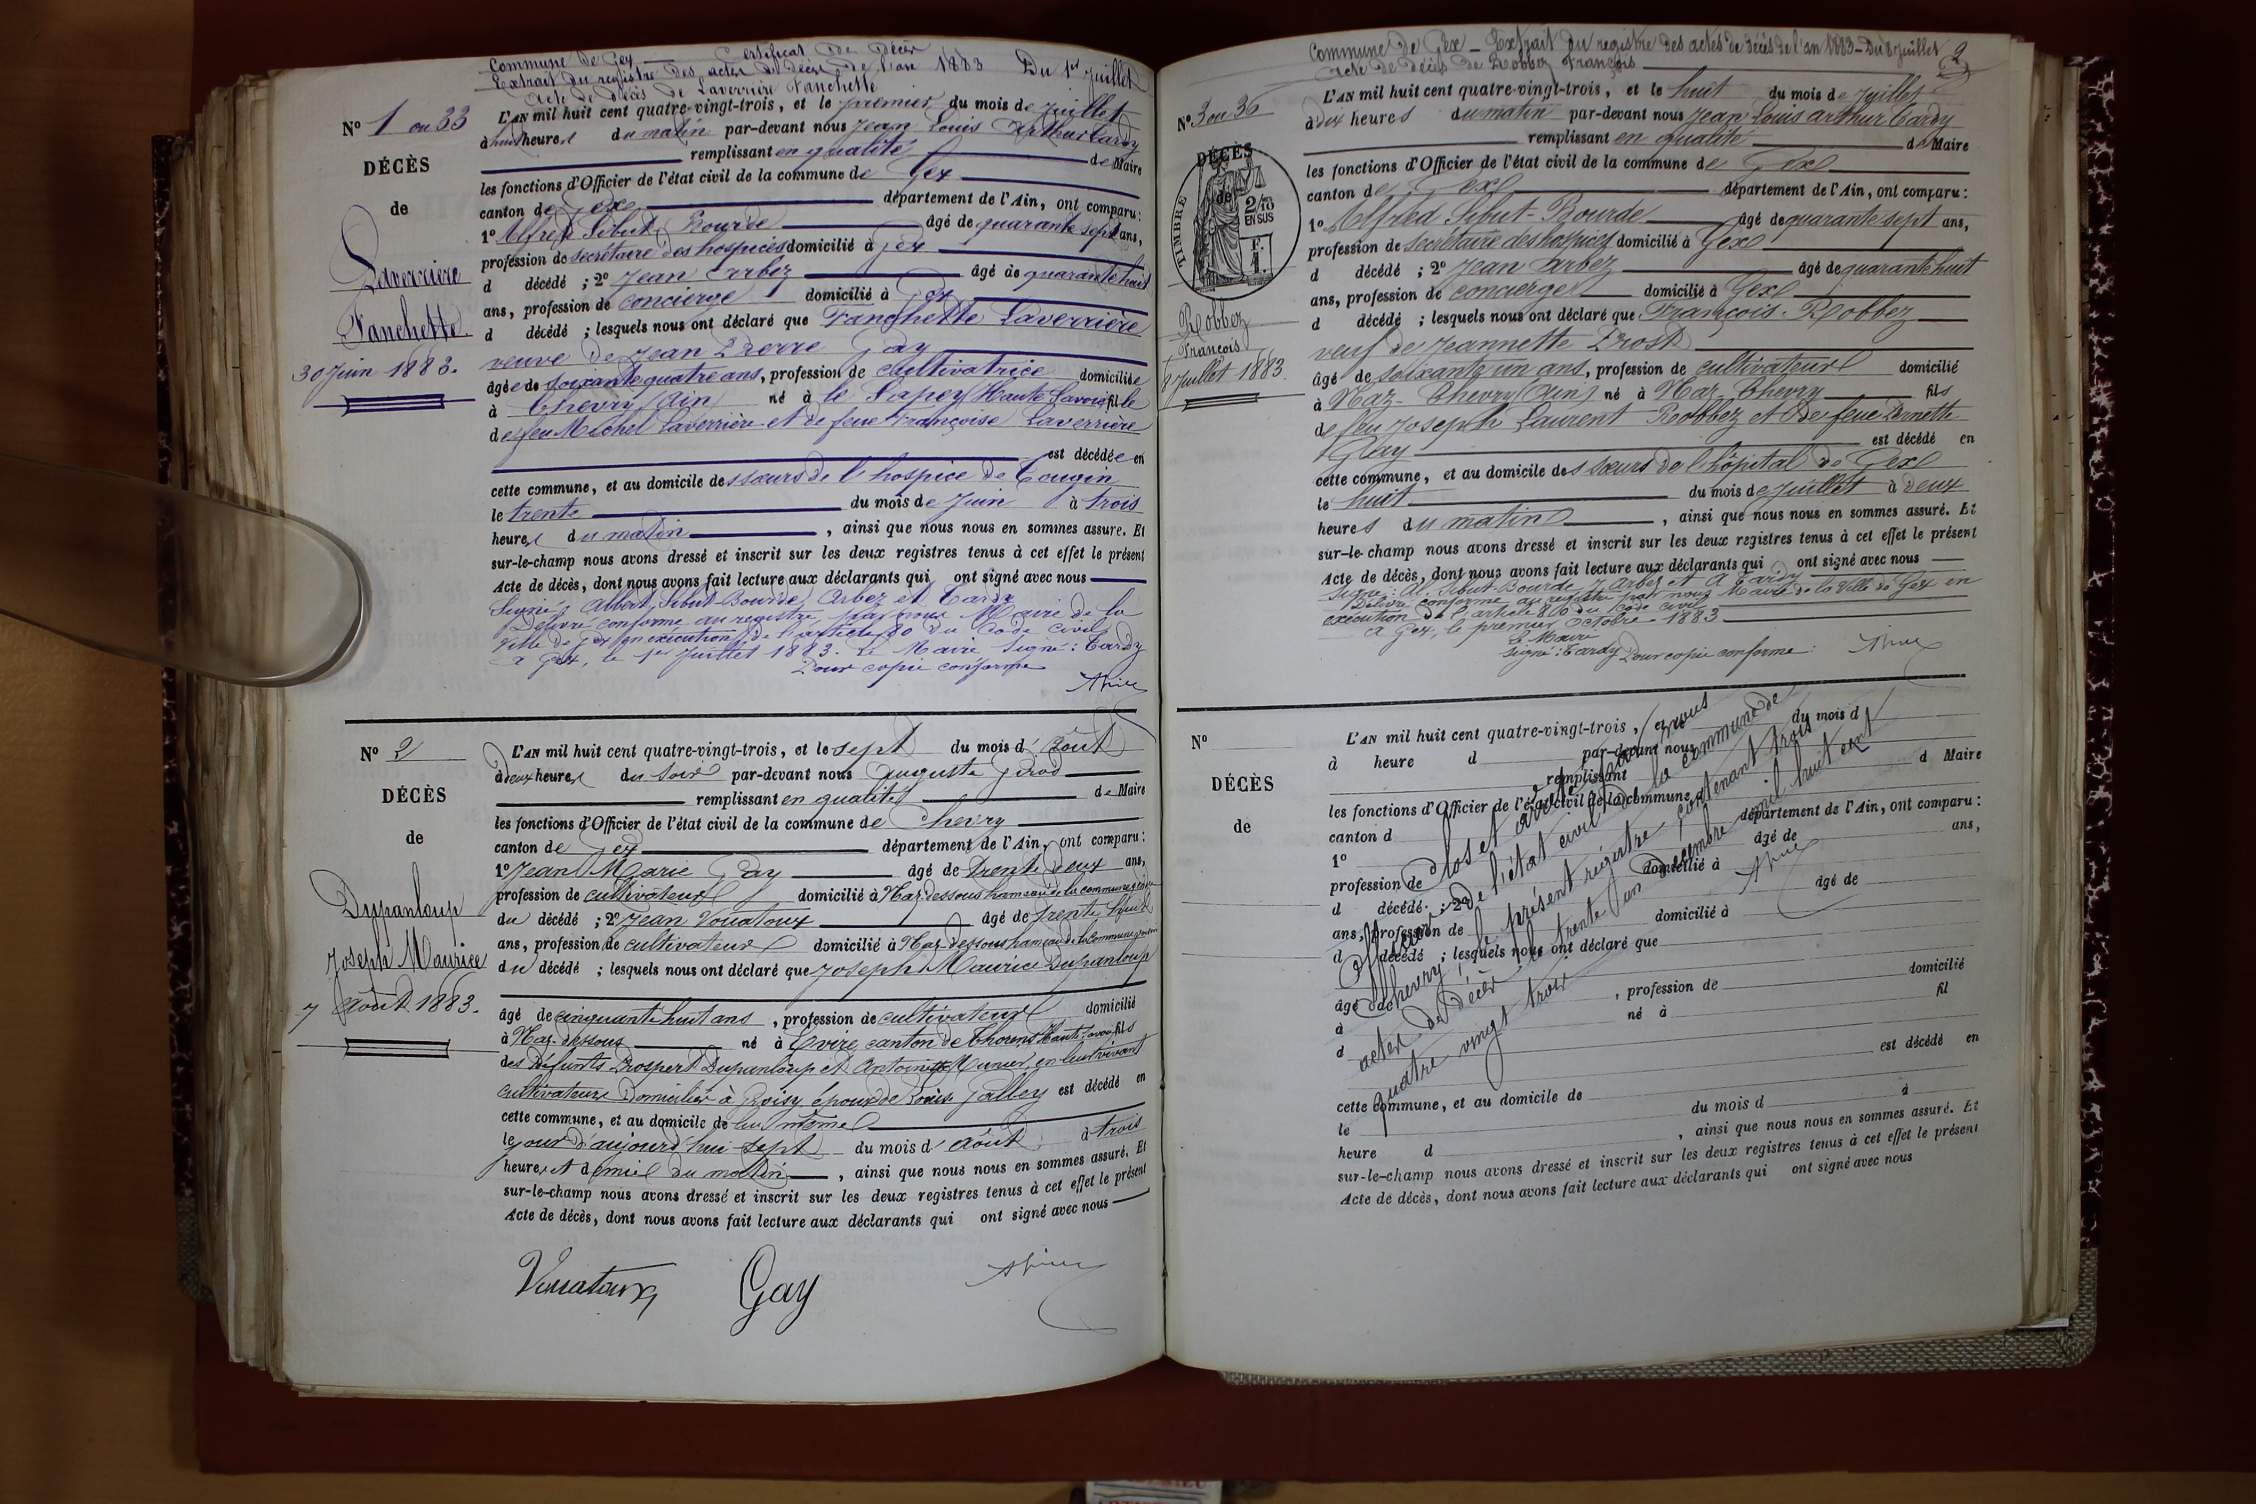 Commune de Gex — Certificat de décès
Extrait du registre des actes de décès de l'an 1883 Du 1er Juillet
Acte de décès de Laverrière Fanchette
N° 1 ou 33
DÉCÈS
de
Laverrière
Fanchette
30 Juin 1883.
L'AN mil huit cent quatre-vingt-trois, et le premier du mois de Juillet
à huit heures du matin par-devant nous Jean Louis Arthur Tardy
remplissant en qualité de Maire
les fonctions d'Officier de l'état civil de la commune de Gex
canton de Gex département de l'Ain, ont comparu :
1° Alfred Sibut-Bourde âgé de quarante sept ans,
profession de secrétaire des hospices domicilié à Gex
d décédé ; 2° Jean Arbez âgé de quarante huit
ans, profession de concierge domicilié à Gex
d décédé ; lesquels nous ont déclaré que Fanchette Laverrière
veuve de Jean Pierre Gay
âgée de soixante quatre ans, profession de cultivatrice domiciliée
à Chevry (Ain) né à le Sapey (Haute Savoie) fille
de feu Michel Laverrière et de feue Françoise Laverrière
est décédée en
cette commune, et au domicile des sœurs de l'hospice de Tougin
le trente du mois de Juin à trois
heures du matin, ainsi que nous nous en sommes assuré. Et
sur-le-champ nous avons dressé et inscrit sur les deux registres tenus à cet effet le présent
Acte de décès, dont nous avons fait lecture aux déclarants qui ont signé avec nous
Signé : Albert Sibut-Bourde, Arbez et Tardy
Délivré conforme au registre, par nous Maire de la
Ville de Gex en exécution de l'article 80 du Code civil
à Gex, le 1er Juillet 1883. Le Maire Signé : Tardy
Pour copie conforme
N° 2
DÉCÈS
de
Dupanloup
Joseph Maurice
7 Août 1883.
L'AN mil huit cent quatre-vingt-trois, et le sept du mois d'Août
à deux heures du soir par-devant nous Auguste Girod
remplissant en qualité de Maire
les fonctions d'Officier de l'état civil de la commune de Chevry
canton de Gex département de l'Ain, ont comparu :
1° Jean Marie Gay âgé de trente deux ans,
profession de cultivateur domicilié à Naz-dessous hameau de la commune
du décédé ; 2° Jean Vouatoux âgé de trente huit
ans, profession de cultivateur domicilié à Naz-dessous hameau de la Commune
du décédé ; lesquels nous ont déclaré que Joseph Maurice Dupanloup
âgé de cinquante huit ans, profession de cultivateur domicilié
à Naz-dessous né à Evires, canton de Thorens Haute-Savoie fils
des défunts Prospert Dupanloup et Antoinette Munier, en leur vivant
cultivateurs domiciliés à Groisy, époux de Louise Falley est décédé en
cette commune, et au domicile de lui même
le jour d'aujourd'hui sept du mois d'Août à trois
heures et demie du matin, ainsi que nous nous en sommes assuré. Et
sur-le-champ nous avons dressé et inscrit sur les deux registres tenus à cet effet le présent
Acte de décès, dont nous avons fait lecture aux déclarants qui ont signé avec nous
Vouatoux Gay
Commune de Gex — Extrait du registre des actes de décès de l'an 1883 — Du 8 Juillet
Acte de décès de Robbez François
N° 3 ou 36
DÉCÈS
de
TIMBRE
2/10
EN SUS
F.
1.
Robbez
François
8 Juillet 1883.
L'AN mil huit cent quatre-vingt-trois, et le huit du mois de Juillet
à dix heures du matin par-devant nous Jean Louis Arthur Tardy
remplissant en qualité de Maire
les fonctions d'Officier de l'état civil de la commune de Gex
canton de Gex département de l'Ain, ont comparu :
1° Alfred Sibut-Bourde âgé de quarante sept ans,
profession de secrétaire des hospices domicilié à Gex
d décédé ; 2° Jean Arbez âgé de quarante huit
ans, profession de concierge domicilié à Gex
d décédé ; lesquels nous ont déclaré que François Robbez
veuf de Jeannette Prost
âgé de soixante un ans, profession de cultivateur domicilié
à Naz-Chevry (Ain) né à Naz-Chevry fils
de feu Joseph Laurent Robbez et de feue Pernette
Gay est décédé en
cette commune, et au domicile des sœurs de l'hôpital de Gex
le huit du mois de Juillet à deux
heures du matin, ainsi que nous nous en sommes assuré. Et
sur-le-champ nous avons dressé et inscrit sur les deux registres tenus à cet effet le présent
Acte de décès, dont nous avons fait lecture aux déclarants qui ont signé avec nous
Signé : Al. Sibut-Bourde, J. Arbez et A. Tardy
Délivré conforme au registre par nous Maire de la Ville de Gex en
exécution de l'article 80 du Code civil
à Gex, le premier Octobre 1883.
Le Maire
Signé : Tardy Pour copie conforme :
N°
DÉCÈS
de
L'AN mil huit cent quatre-vingt-trois, du mois d
à heure d par-devant nous
remplissant d Maire
les fonctions d'Officier de l'état civil de la commune d
canton d département de l'Ain, ont comparu :
1° âgé de ans,
profession de domicilié à
d décédé ; 2° âgé de
ans, profession de domicilié à
d décédé ; lesquels nous ont déclaré que
âgé de , profession de domicilié
à né à fil
d
est décédé en
cette commune, et au domicile de
le du mois d à
heure d , ainsi que nous nous en sommes assuré. Et
sur-le-champ nous avons dressé et inscrit sur les deux registres tenus à cet effet le présent
Acte de décès, dont nous avons fait lecture aux déclarants qui ont signé avec nous
Clos et arrêté par nous
Officier de l'état civil de la commune de
Chevry, le présent registre contenant trois
actes de décès le trente un décembre mil huit cent
quatre vingt trois